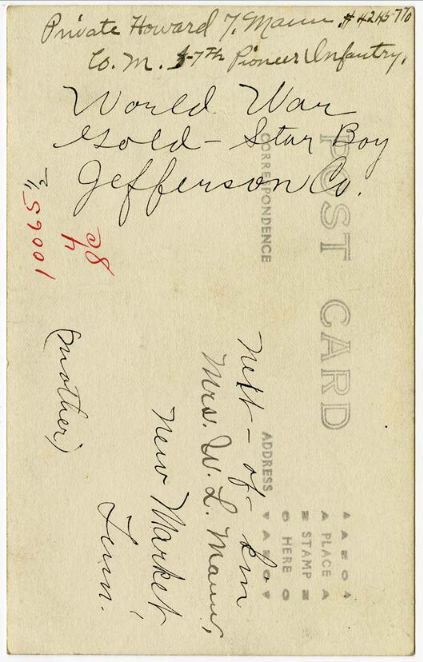 Private Howard T. Mann #
Co. M. 57th Pioneer Infantry.
World War
Gold-Star Boy
Jefferson Co.
POST CARD
CORRESPONDENCE
ADDRESS
PLACE
STAMP
HERE
Next-of-Kin
Mrs. W. L. Mann,
New Market
Tenn.
(mother)